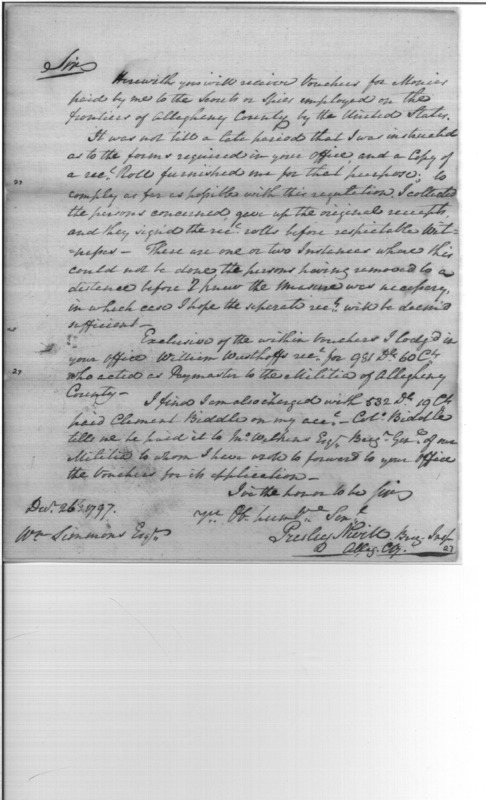 Sir
Herewith you will receive Vouchers for Monies
paid by me to the Scouts or Spies employed on the
frontiers of Allegheny County by the United States.
It was not till a late period that I was instructed
as to the forms required in your office and a Copy of
a recᵗ Roll furnished me for that purpose; to
comply as far as possible with this regulation I collected
the persons concerned, gave up the original receipts,
and they signed the recᵗ rolls before respectable Wit-
-nesses - There are one or two Instances where this
could not be done the persons having removed to a
distance before I knew the measure was necessary,
in which case I hope the seperate recᵗˢ will be deem'd
sufficient -
Exclusive of the within Vouchers I lodg'd in
your office William Wusthoffs recᵗ for 931 Dˢ 60 Cᵗˢ
who acted as Paymaster to the Militia of Allegheny
County -
I find I am also charged with 532 Dˢ 19 Cᵗˢ
paid Clement Biddle on my accᵗ - Colᵒ Biddle
tells me he paid it to Jnᵒ Wilkins Esqʳ Brigʳ Genˡ of our
Militia to whom I have wrote to forward to your Office
the Vouchers for its application -
I've the honor to be Sir
yʳ Obᵗ humbˡᵉ Servᵗ
Presley Nevill Brig Insp
Alleg. Cty.
Decʳ 26ᵗʰ 1797.
Wᵐ Simmons Esqʳ
27
27
27